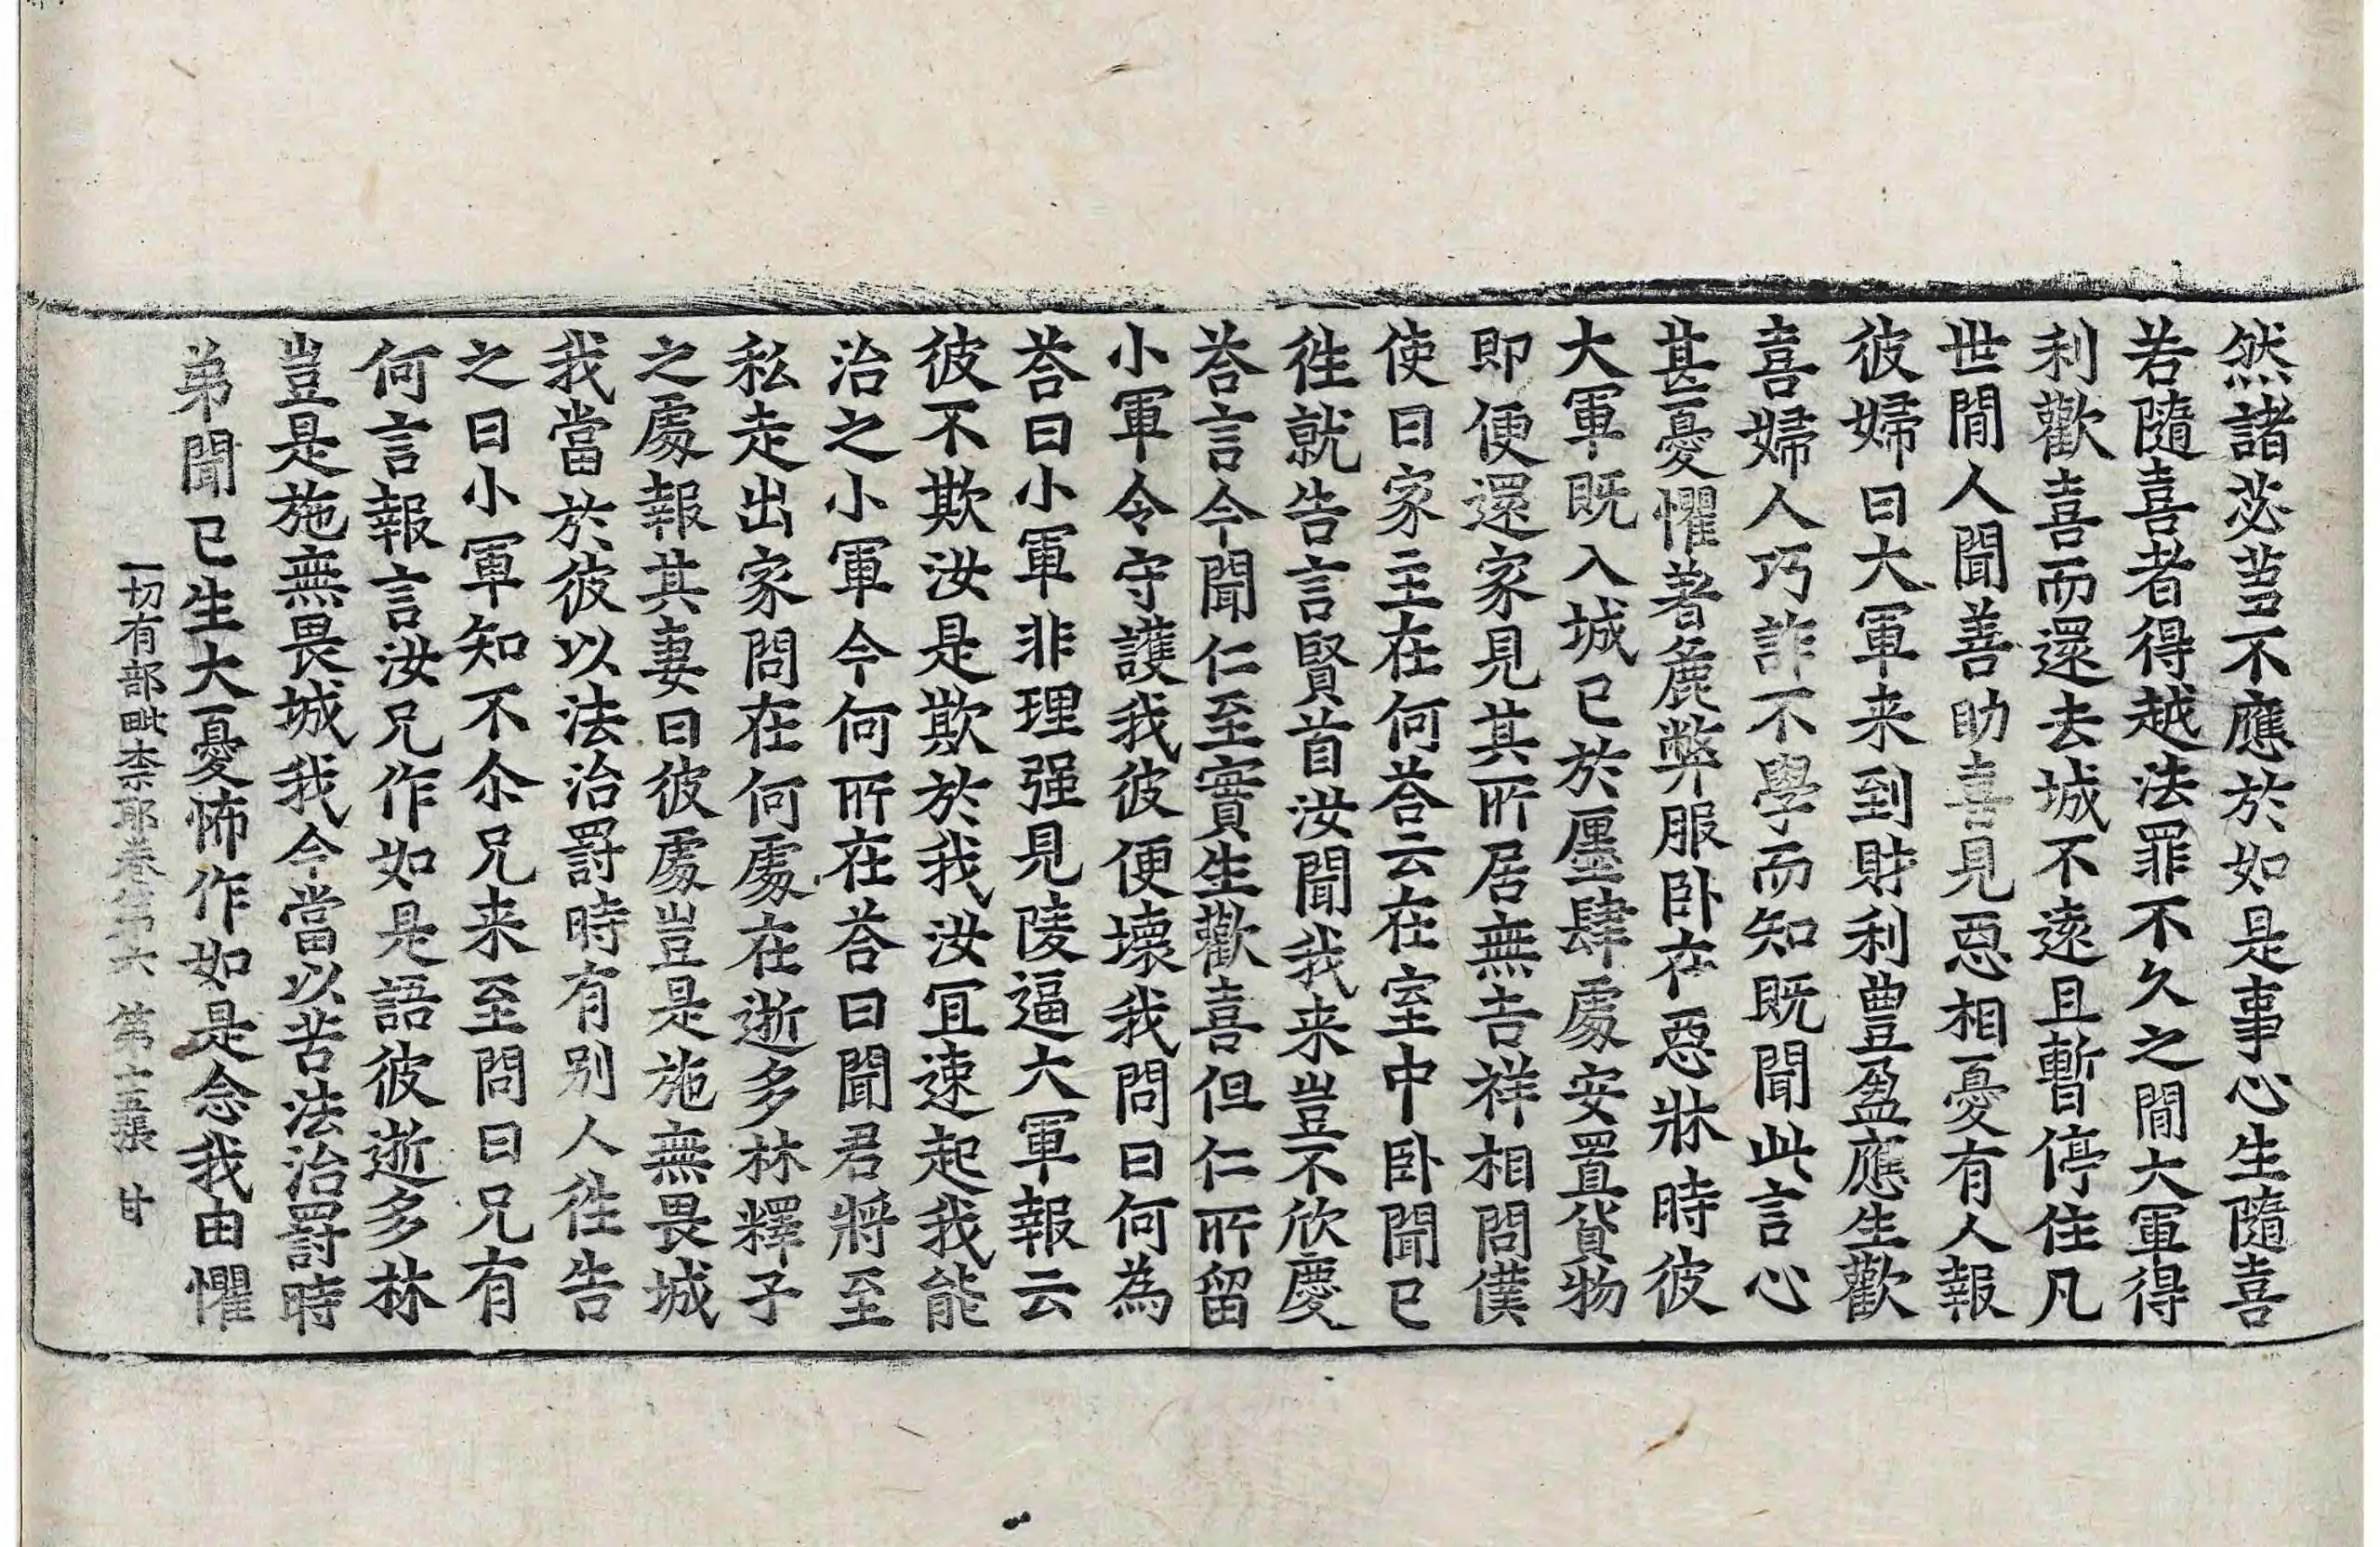 然諸苾蒭不應於如是事心生隨喜
若隨喜者得越法罪不久之間大軍得
利歡喜而還去城不遠且暫停住凡
世間人聞善助喜見惡相憂有人報
彼婦曰大軍来到財利豊盈應生歡
喜婦人巧詐不學而知既聞此言心
甚憂懼著麁弊服卧在惡牀時彼
大軍既入城已於㕓肆處安置貨物
即便還家見其所居無吉祥相問僕
使曰家主在何荅云在室中卧聞已
徃就告言賢首汝聞我来豈不欣慶
荅言今聞仁至實生歡喜但仁所留
小軍令守護我彼便壞我問曰何為
荅曰小軍非理强見陵逼大軍報云
彼不欺汝是欺於我汝冝速起我能
治之小軍今何所在荅曰聞君將至
私走出家問在何處在逝多林釋子
之處報其妻曰彼處豈是施無畏城
我當於彼以法治罸時有別人徃告
之曰小軍知不尒兄来至問曰兄有
何言報言汝兄作如是語彼逝多林
豈是施無畏城我今當以苦法治罸時
弟聞已生大憂怖作如是念我由懼
一切有部毗柰耶卷第六 第十五張 甘